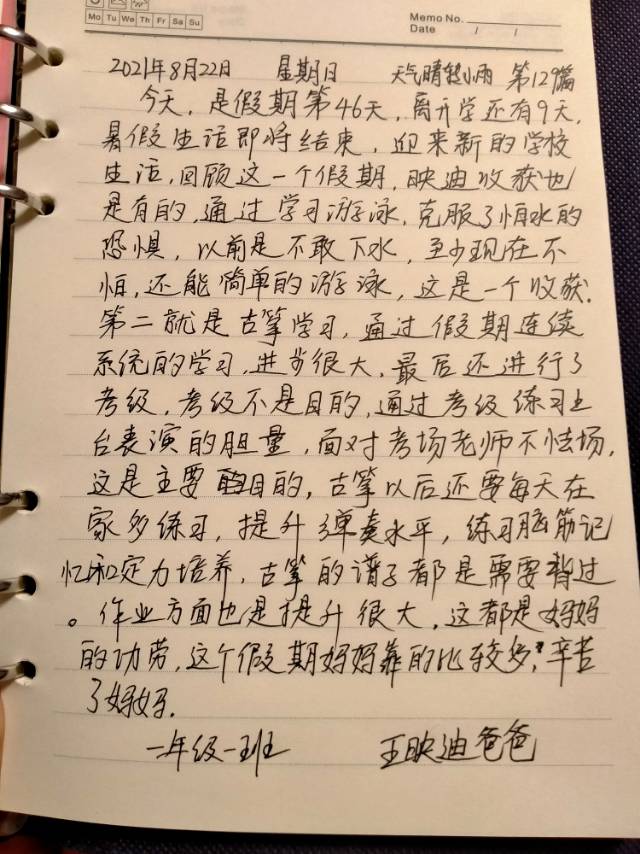 Mo Tu We Th Fr Sa Su
Memo No.
Date / /
2021年8月22日 星期日 天气晴转小雨 第129篇
今天,是假期第46天,离开学还有9天,
暑假生活即将结束,迎来新的学校
生活,回顾这一个假期,映迪收获也
是有的,通过学习游泳,克服了怕水的
恐惧,以前是不敢下水,至少现在不
怕,还能简单的游泳,这是一个收获.
第二就是古筝学习,通过假期连续
系统的学习,进步很大,最后还进行了
考级,考级不是目的,通过考级练习上
台表演的胆量,面对考场老师不怯场,
这是主要的目的,古筝以后还要每天在
家多练习,提升弹奏水平,练习脑筋记
忆和定力培养,古筝的谱子都是需要背过
。作业方面也是提升很大,这都是妈妈
的功劳,这个假期妈妈靠的比较多,辛苦
了妈妈.
二年级一班 王映迪爸爸